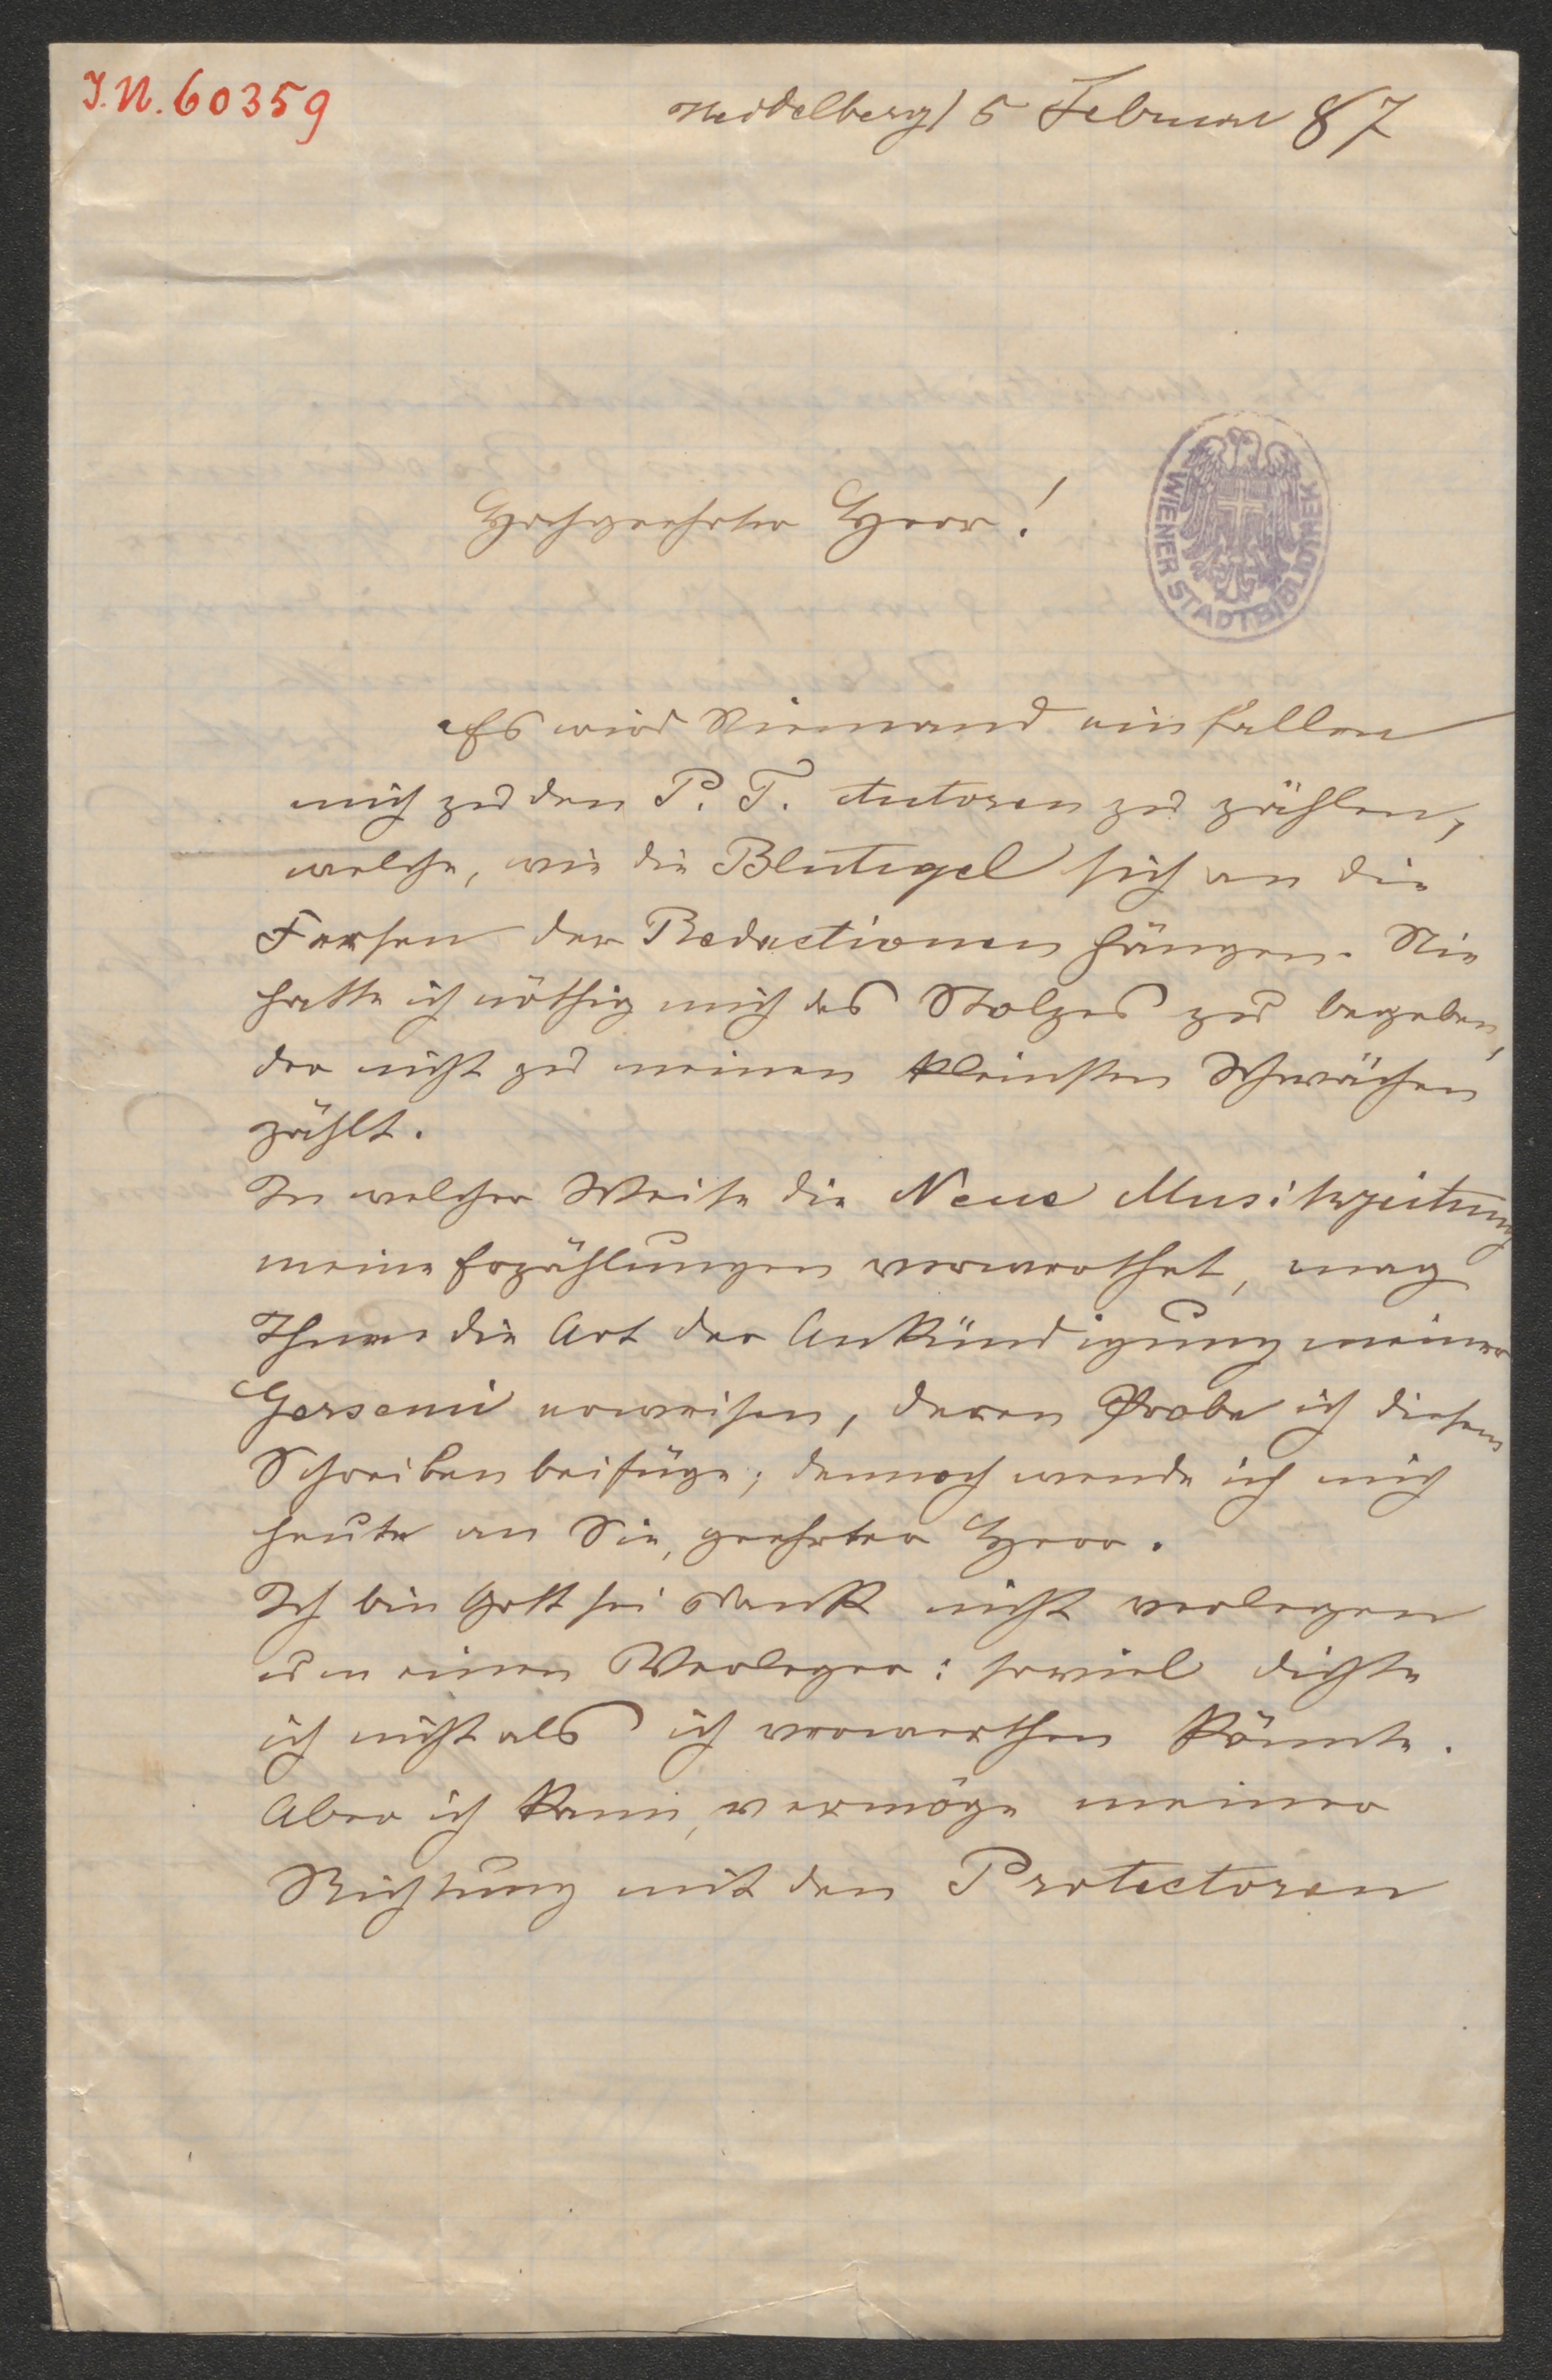 J.N. 60359
Heidelberg 5 Februar 87
Hochgeehrter Herr!
WIENER STADTBIBLIOTHEK
Es wird Niemand einfallen
mich zu den P. T. Autoren zu zählen,
welche, wie die Blutegel sich an die
Fersen der Redactionen hängen. Nie
hatte ich nöthig mich des Stolzes zu begeben,
der nicht zu meinen kleinsten Schwächen
zählt.
In welcher Weise die Neue Musikzeitung
meine Erzählungen verwerthet, mag
Ihnen die Art der Ankündigung meiner
Gersemi erweisen, deren Probe ich diesem
Schreiben beifüge; dennoch wende ich mich
heute an Sie, geehrter Herr.
Ich bin Gott sei Dank nicht verlegen
um einen Verleger: soviel dichte
ich nicht als ich verwerthen könnte.
Aber ich kann, vermöge meiner
Richtung mit den Protectoren